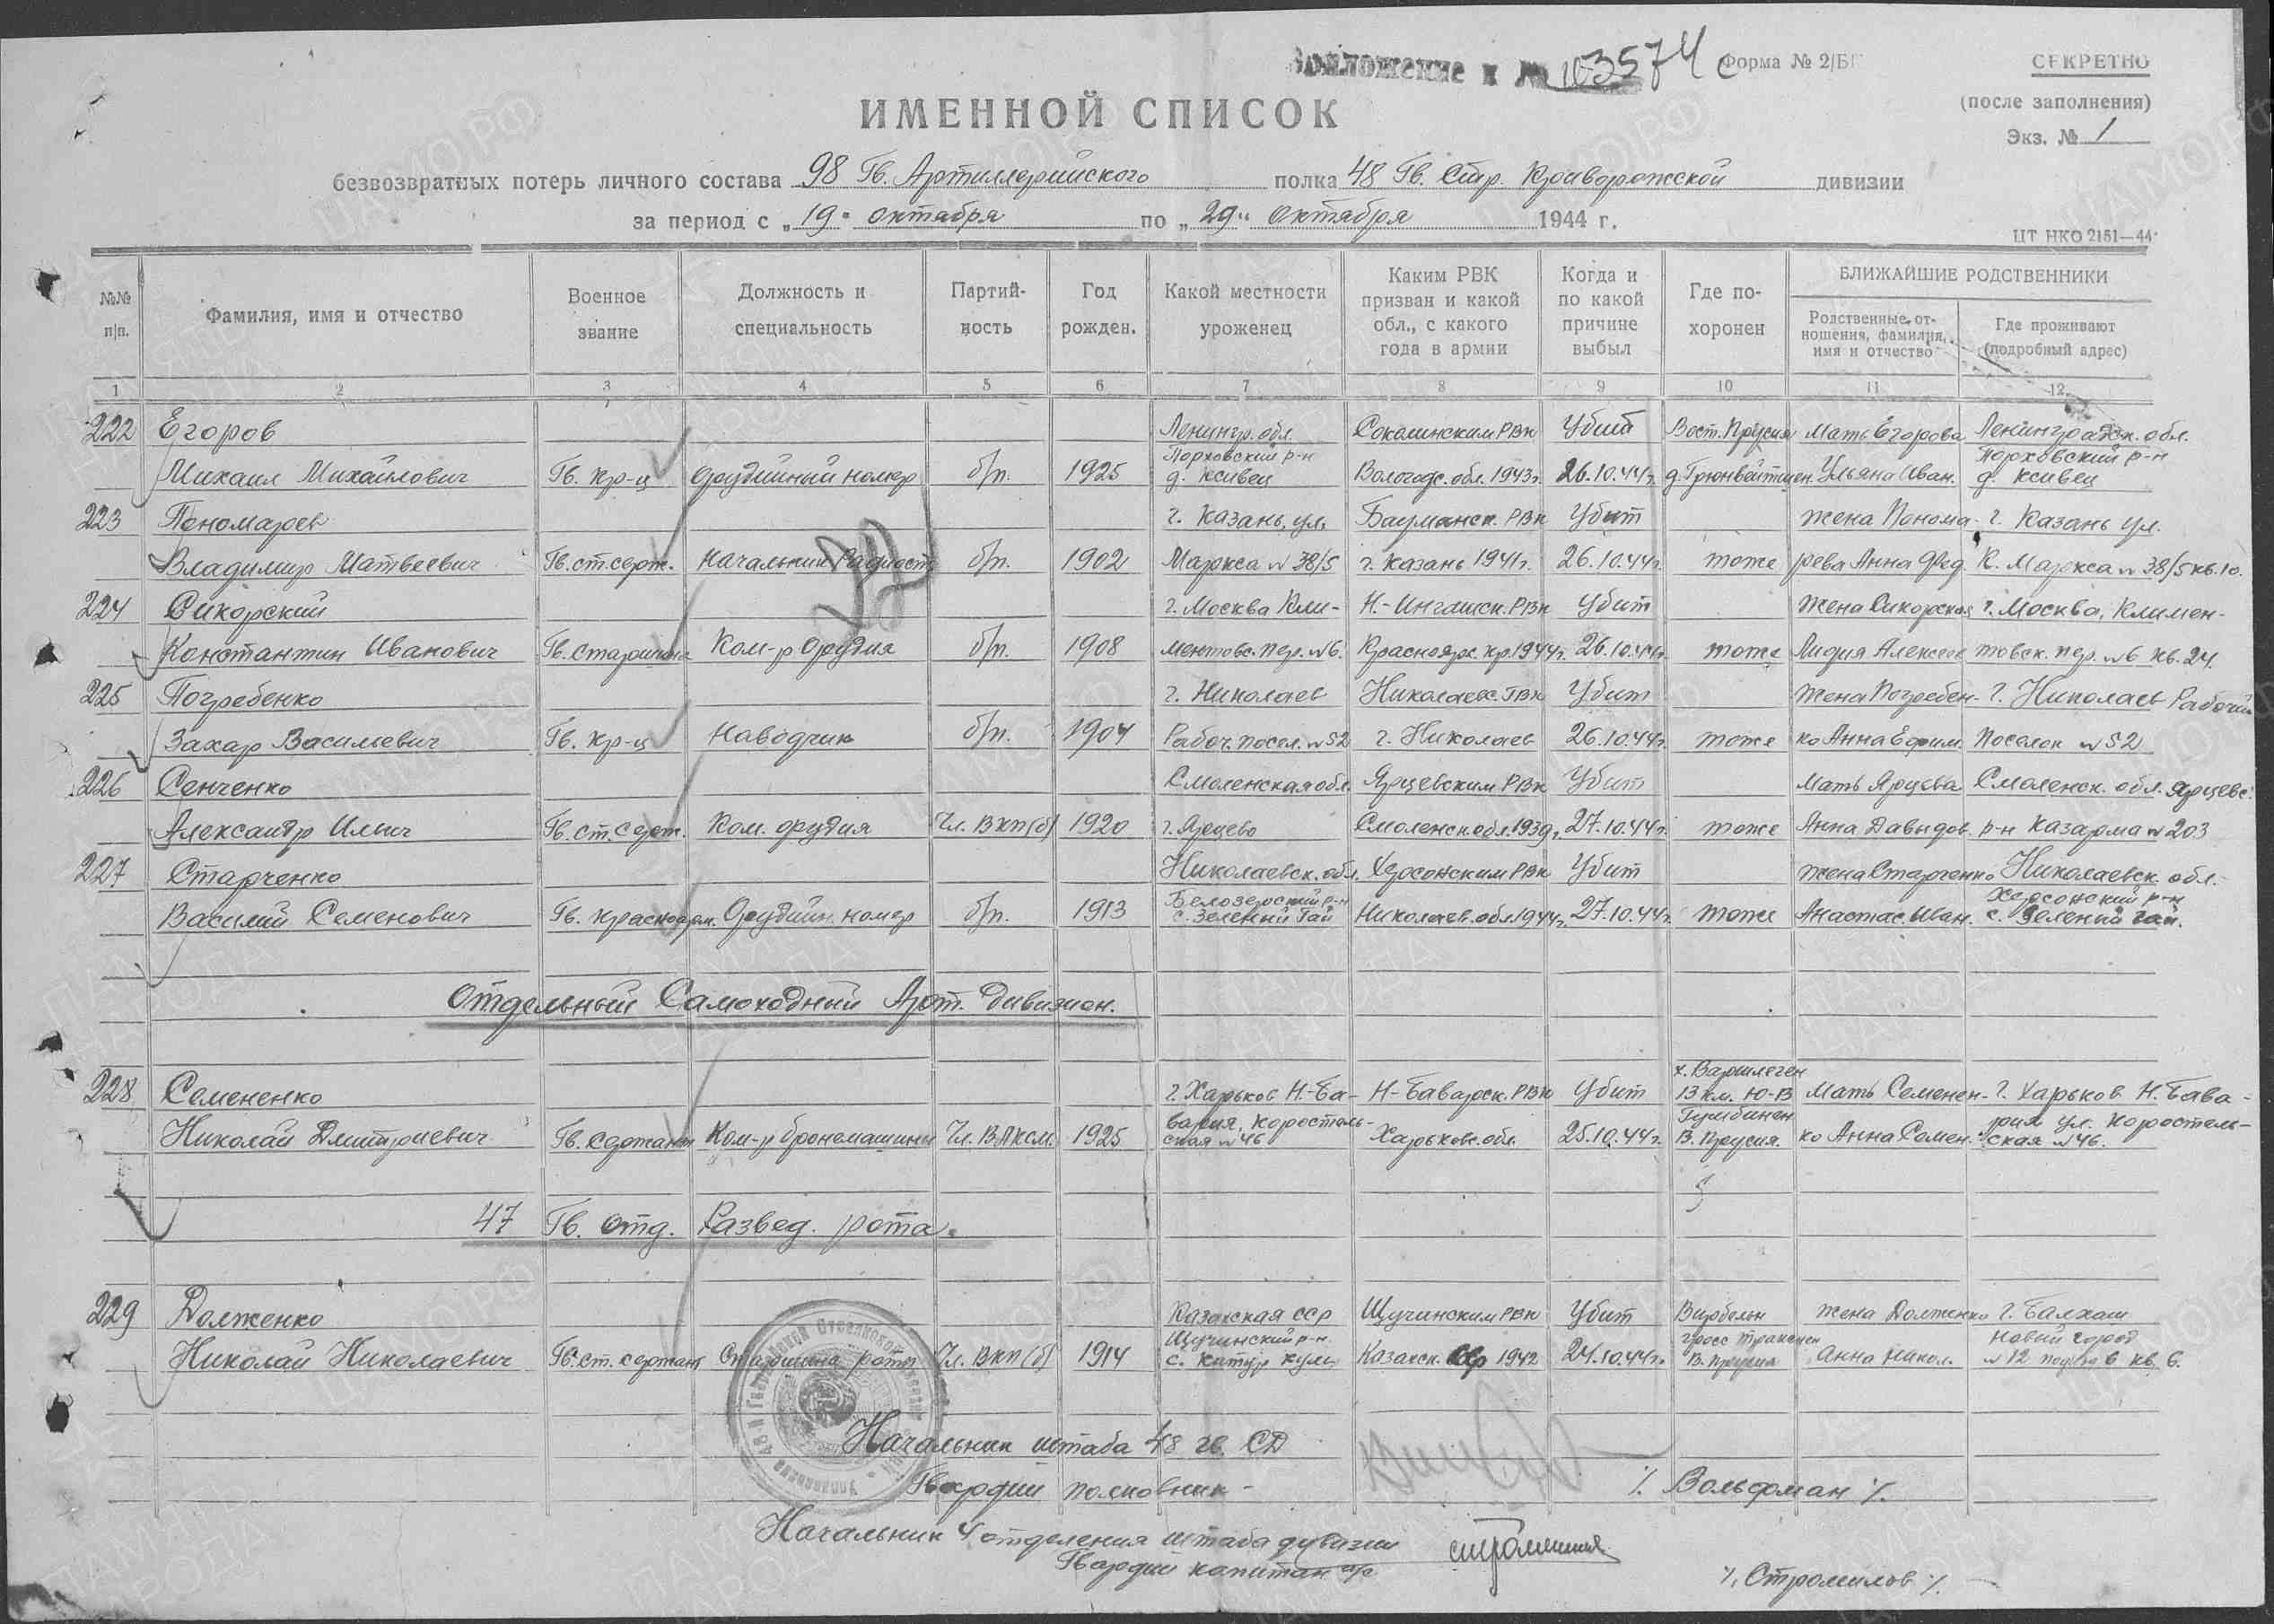 Приложение к № 103574с Форма № 2/БП СЕКРЕТНО
(после заполнения)
Экз. № 1
ИМЕННОЙ СПИСОК
безвозвратных потерь личного состава 98 Гв. Артиллерийского полка 48 Гв. Стр. Криворожской дивизии
за период с „19" октября по „29" октября 1944 г.
ЦТ НКО 2151—44
№№ п/п. Фамилия, имя и отчество Военное звание Должность и специальность Партийность Год рожден. Какой местности уроженец Каким РВК призван и какой обл., с какого года в армии Когда и по какой причине выбыл Где похоронен БЛИЖАЙШИЕ РОДСТВЕННИКИ
Родственные отношения, фамилия, имя и отчество Где проживают (подробный адрес)
1 2 3 4 5 6 7 8 9 10 11 12
222 Егоров Ленингр. обл. Соколинским РВК Убит Вост. Прусия Мать Егорова Ленинградск. обл.
Порховский р-н Порховский р-н
Михаил Михайлович Гв. кр-ц орудийный номер б/п. 1925 д. Ксивец Вологодс. обл. 1943г. 26.10.44г. Ульяна Иван. д. Ксивец
223 Пономарев г. Казань, ул. Бауманск. РВК Убит Жена Понома- г. Казань ул.
Владимир Матвеевич Гв. ст. серж. Начальник Радиост б/п. 1902 Маркса № 38/5 г. Казань 1941г. 26.10.44г. тоже рева Анна Фед. К. Маркса № 38/5 кв. 10.
224 Сикорский г. Москва Кли- Н.-Ингашск. РВК Убит Жена Сикорская г. Москва, Климен-
Константин Иванович Гв. старшина Ком-р Орудия б/п. 1908 ментовс. пер. № 6. Красноярс. кр. 1944г. 26.10.44г. тоже Лидия Алексеев товск. пер. № 6 кв. 24.
225 Погребенко г. Николаев Николаевс. ГВК Убит Жена Погребен- г. Николаев Рабочий
Захар Васильевич Гв. кр-ц Наводчик б/п. 1904 Рабоч. посел. № 52 г. Николаев 26.10.44г. тоже ко Анна Ефим. Поселок № 52
226 Сенченко Смоленская обл. Ярцевским РВК Убит Мать Ярцева Смоленск. обл. Ярцевс.
Александр Ильич Гв. ст. серж. Ком. орудия Чл. ВКП(б) 1920 г. Ярцево Смоленск. обл. 1939г. 27.10.44г. тоже Анна Давыдов. р-н Казарма № 203
227 Старченко Николаевск. обл. Херсонским РВК Убит Жена Старченко Николаевск. обл.
Белозерский р-н Херсонский р-н
Василий Семенович Гв. красноарм. Орудийн. номер б/п. 1913 с. Зеленый Гай Николаев. обл. 1944г. 27.10.44г. тоже Анастас. Иван. с. Зеленый Гай.
Отдельный Самоходный Арт. дивизион.
228 Семененко г. Харьков Н.-Ба- Н-Баварск. РВК Убит 13 км. Ю-В Мать Семенен- г. Харьков Н. Бава-
вария, Коростель- Гумбинен рия ул. Коростель-
Николай Дмитриевич Гв. сержант Ком-р бронемашины Чл. ВЛКСМ. 1925 ская № 46 Харьковс. обл. 25.10.44г. В. Прусия. ко Анна Семен. ская № 46.
47 Гв. отд. Развед. рота.
229 Долженко Казахская ССР Щучинским РВК Убит Жена Долженко г. Балхаш
Щучинский р-н. Новый город
Николай Николаевич Гв. ст. сержант Старшина роты Чл. ВКП(б) 1914 Казахск. ССР 1942 24.10.44г. В. Прусия Анна Никол. № 12 подъезд 6 кв. 6.
Начальник штаба 48 гв. СД
Гвардии полковник - /. Вольфман /.
Начальник 4 отделения штаба дивизии
Гвардии капитан а/с
/. Стромилов /.